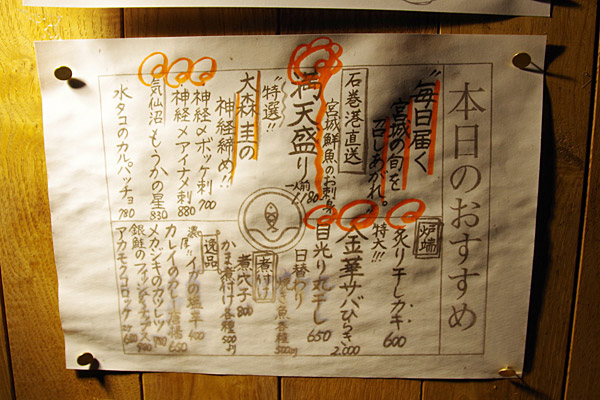 本日のおすすめ
"毎日届く
宮城の旬を
召しあがれ。
石巻港直送
宮城鮮魚のお刺身
満天盛り
一人前
"特選!!
大森圭の
神経締め!!
神経〆ボッケ刺 700
神経〆アイナメ刺 880
気仙沼もうかの星 830
水タコのカルパッチョ 780
炉端
炙り干しガキ 600
特大!!
金華サバひらき 2,000
目光り丸干し 650
日替わり
焼き魚各種 500より
煮付け
煮穴子 800
かま煮付け各種 500より
逸品
濃厚!!
イカの塩辛
カレイの
650
メカジキのカツレツ
銀鮭のフィッシュ&チップス
アカモクコロッケ